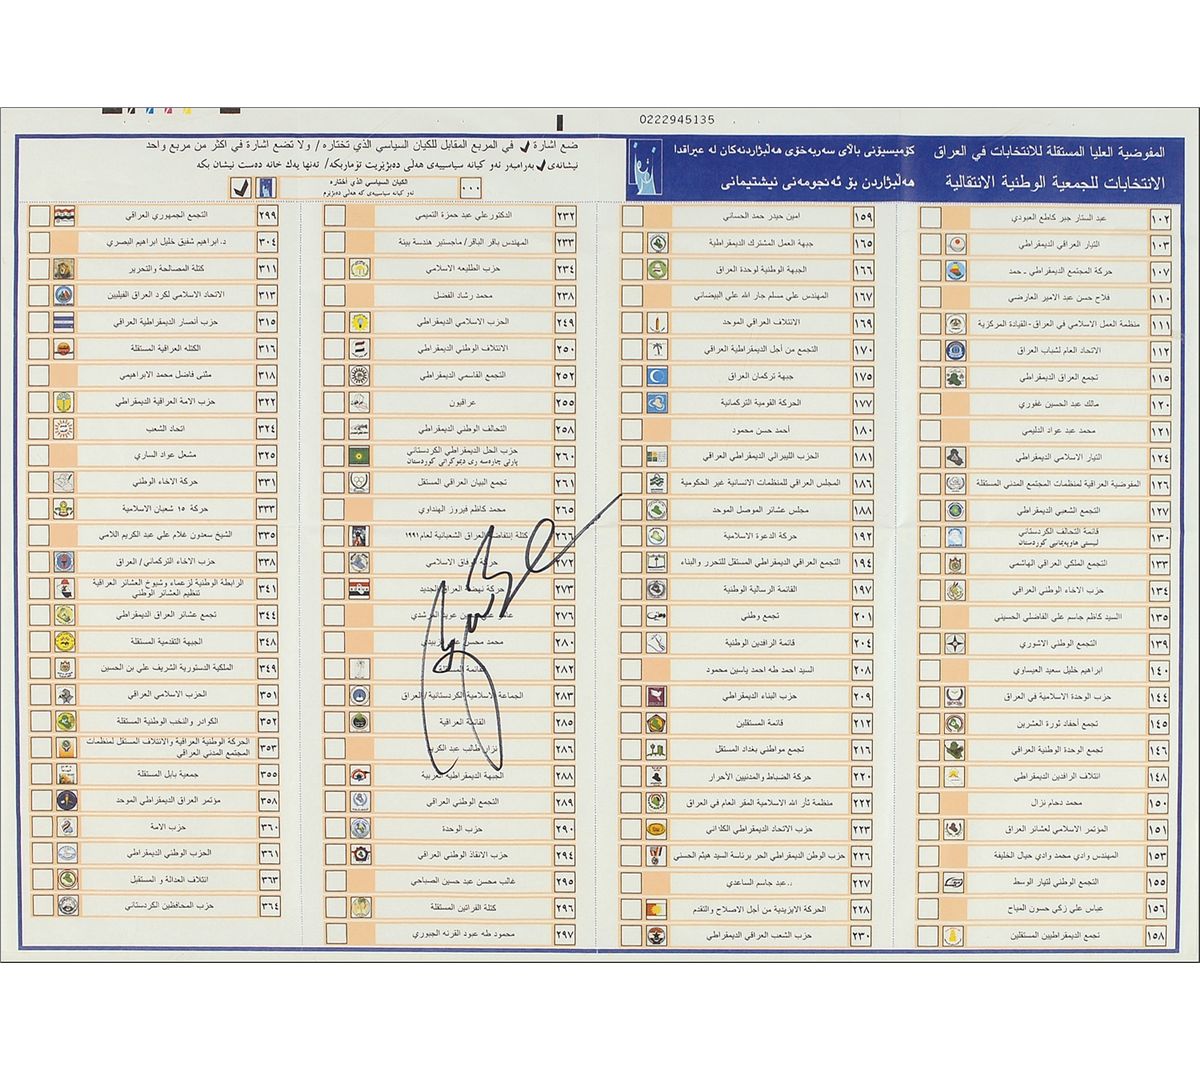 0222945135
المفوضية العليا المستقلة للانتخابات في العراق
الانتخابات للجمعية الوطنية الانتقالية
كۆميسيۆنى بالآى سەربەخۆى هەلبژاردنەكان لە عيراقدا
هەلبژاردن بۆ ئەنجومەنى نيشتيمانى
ضع اشارة ✓ في المربع المقابل للكيان السياسي الذي تختاره / ولا تضع اشارة في اكثر من مربع واحد
نيشانەى ✓ بەرامبەر ئەو كيانە سياسييەى هەلى دەبژێريت تۆماربكە/ تەنها يەك خانە دەست نيشان بكە
٠٠٠ الكيان السياسي الذي اختاره ✓
ئەو كيانە سياسييەى كە هەلى دەبژێرم
١٠٢ عبد الستار جبر كاطع العبودي
١٠٣ التيار العراقي الديمقراطي
١٠٧ حركة المجتمع الديمقراطي - حمد
١١٠ فلاح حسن عبد الامير العارضي
١١١ منظمة العمل الاسلامي في العراق - القيادة المركزية
١١٢ الاتحاد العام لشباب العراق
١١٥ تجمع العراق الديمقراطي
١٢٠ مالك عبد الحسين غفوري
١٢١ محمد عبد عواد الدليمي
١٢٤ التيار الاسلامي الديمقراطي
١٢٦ المفوضية العراقية لمنظمات المجتمع المدني المستقلة
١٢٧ التجمع الشعبي الديمقراطي
١٣٠ قائمة التحالف الكردستاني
ليستى هاوپەيمانيى كوردستان
١٣٣ التجمع الملكي العراقي الهاشمي
١٣٤ حزب الاخاء الوطني العراقي
١٣٥ السيد كاظم جاسم علي الفاضلي الحسيني
١٣٩ التجمع الوطني الاشوري
١٤٠ ابراهيم خليل سعيد العيساوي
١٤٤ حزب الوحدة الاسلامية في العراق
١٤٥ تجمع أحفاد ثورة العشرين
١٤٦ تجمع الوحدة الوطنية العراقي
١٤٨ ائتلاف الرافدين الديمقراطي
١٥٠ محمد دحام نزال
١٥١ المؤتمر الاسلامي لعشائر العراق
١٥٣ المهندس وادي محمد وادي حيال الخليفة
١٥٥ التجمع الوطني لتيار الوسط
١٥٦ عباس علي زكي حسون المياح
١٥٨ تجمع الديمقراطيين المستقلين
١٥٩ امين حيدر حمد الحساني
١٦٥ جبهة العمل المشترك الديمقراطية
١٦٦ الجبهة الوطنية لوحدة العراق
١٦٧ المهندس علي مسلم جار الله علي البيضاني
١٦٩ الائتلاف العراقي الموحد
١٧٠ التجمع من أجل الديمقراطية العراقي
١٧٥ جبهة تركمان العراق
١٧٧ الحركة القومية التركمانية
١٨٠ أحمد حسن محمود
١٨١ الحزب الليبرالي الديمقراطي العراقي
١٨٦ المجلس العراقي للمنظمات الانسانية غير الحكومية
١٨٨ مجلس عشائر الموصل الموحد
١٩٢ حركة الدعوة الاسلامية
١٩٤ التجمع العراقي الديمقراطي المستقل للتحرر والبناء
١٩٧ القائمة الرسالية الوطنية
٢٠١ تجمع وطني
٢٠٤ قائمة الرافدين الوطنية
٢٠٨ السيد احمد طه احمد ياسين محمود
٢٠٩ حزب البناء الديمقراطي
٢١٢ قائمة المستقلين
٢١٦ تجمع مواطني بغداد المستقل
٢٢٠ حركة الضباط والمدنيين الأحرار
٢٢٢ منظمة ثأر الله الاسلامية المقر العام في العراق
٢٢٣ حزب الاتحاد الديمقراطي الكلداني
٢٢٦ حزب الوطن الديمقراطي الحر برئاسة السيد هيثم الحسني
٢٢٧ د.عبد جاسم الساعدي
٢٢٨ الحركة الايزيدية من أجل الاصلاح والتقدم
٢٣٠ حزب الشعب العراقي الديمقراطي
٢٣٢ الدكتور علي عبد حمزة التميمي
٢٣٣ المهندس باقر الباقر/ ماجستير هندسة بيئة
٢٣٤ حزب الطليعه الاسلامي
٢٣٨ محمد رشاد الفضل
٢٤٩ الحزب الاسلامي الديمقراطي
٢٥٠ الائتلاف الوطني الديمقراطي
٢٥٢ التجمع القاسمي الديمقراطي
٢٥٥ عراقيون
٢٥٨ التحالف الوطني الديمقراطي
٢٦٠ حزب الحل الديمقراطي الكردستاني
پارتى چارەسەرى ديموكراتى كوردستان
٢٦١ تجمع البيان العراقي المستقل
٢٦٥ محمد كاظم فيروز الهنداوي
٢٦٦ كتلة إنتفاضة العراق الشعبانية لعام ١٩٩١
٢٧٢ حركة الوفاق الاسلامي
٢٧٣ حركة نهضة العراق الجديد
٢٧٦ عويد الرشدي
٢٨٠ محمد محسن الزبيدي
٢٨٢ القائمة المستقلة
٢٨٣ الجماعة الاسلامية الكردستانية/ العراق
٢٨٥ القائمة العراقية
٢٨٦ نزار طالب عبد الكريم
٢٨٨ الجبهة الديمقراطية العربية
٢٨٩ التجمع الوطني العراقي
٢٩٠ حزب الوحدة
٢٩٤ حزب الانقاذ الوطني العراقي
٢٩٥ غالب محسن عبد حسين الصباحي
٢٩٦ كتلة الفراتين المستقلة
٢٩٧ محمود طه عبود القرنه الجبوري
٢٩٩ التجمع الجمهوري العراقي
٣٠٤ د. ابراهيم شفيق خليل ابراهيم البصري
٣١١ كتلة المصالحة والتحرير
٣١٣ الاتحاد الاسلامي لكرد العراق الفيليين
٣١٥ حزب أنصار الديمقراطية العراقي
٣١٦ الكتله العراقية المستقلة
٣١٨ مثنى فاضل محمد الابراهيمي
٣٢٢ حزب الامة العراقية الديمقراطي
٣٢٤ اتحاد الشعب
٣٢٥ مشعل عواد الساري
٣٣١ حركة الاخاء الوطني
٣٣٣ حركة ١٥ شعبان الاسلامية
٣٣٥ الشيخ سعدون غلام علي عبد الكريم اللامي
٣٣٨ حزب الاخاء التركماني / العراق
٣٤١ الرابطة الوطنية لزعماء وشيوخ العشائر العراقية
تنظيم العشائر الوطني
٣٤٤ تجمع عشائر العراق الديمقراطي
٣٤٨ الجبهة التقدمية المستقلة
٣٤٩ الملكية الدستورية الشريف علي بن الحسين
٣٥١ الحزب الاسلامي العراقي
٣٥٢ الكوادر والنخب الوطنية المستقلة
٣٥٣ الحركة الوطنية العراقية والائتلاف المستقل لمنظمات
المجتمع المدني العراقي
٣٥٥ جمعية بابل المستقلة
٣٥٨ مؤتمر العراق الديمقراطي الموحد
٣٦٠ حزب الامة
٣٦١ الحزب الوطني الديمقراطي
٣٦٣ ائتلاف العدالة و المستقبل
٣٦٤ حزب المحافظين الكردستاني